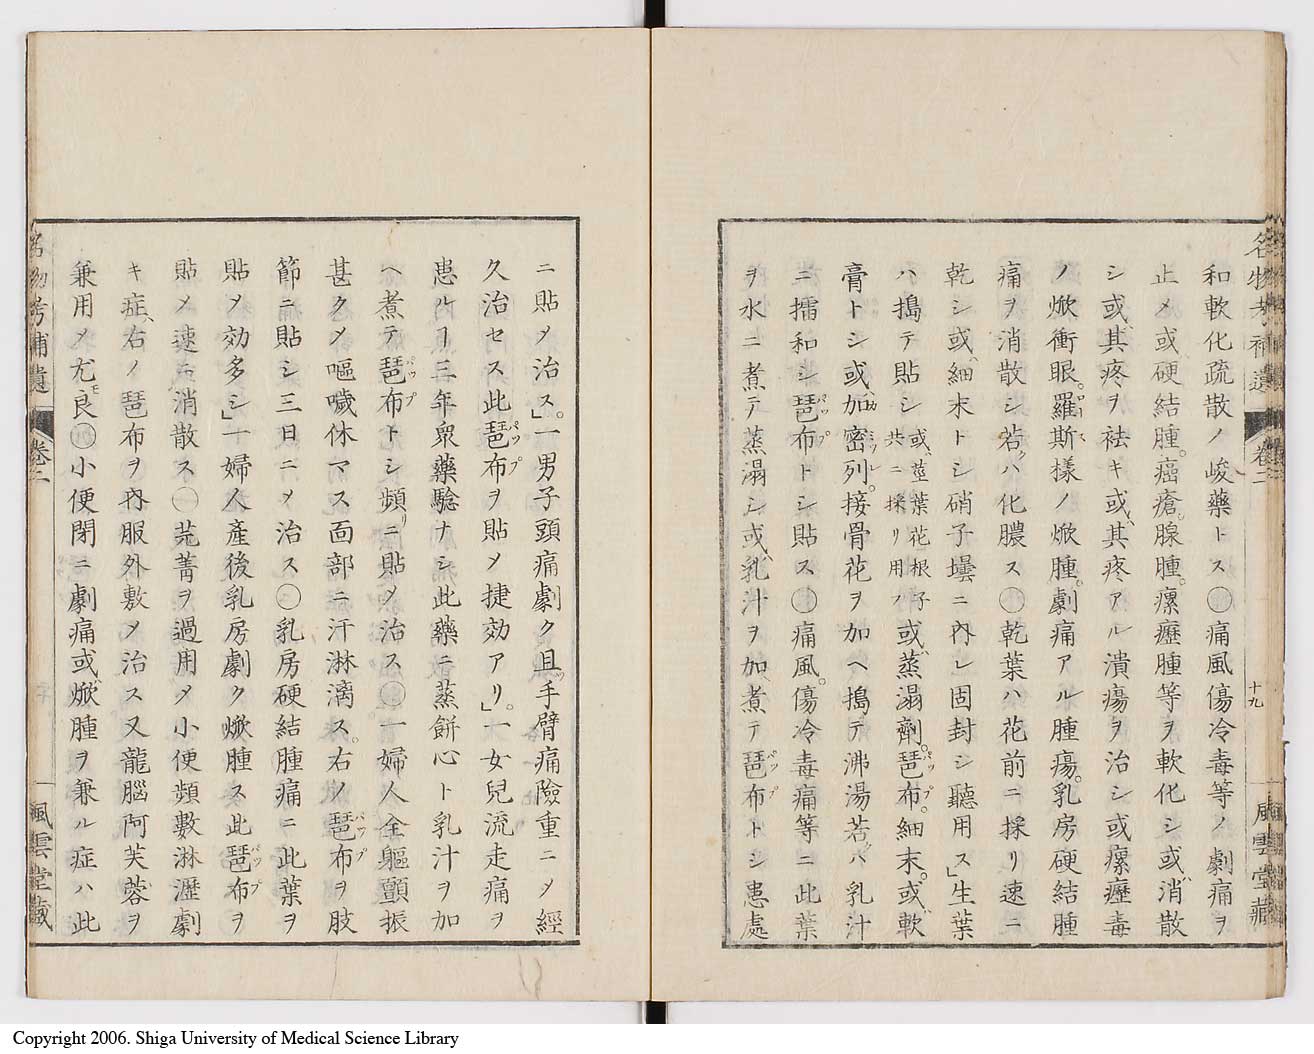 名物考補遺 卷二 十九 風雲堂藏
和軟化疏散ノ峻藥トス〇痛風傷冷毒等ノ劇痛ヲ
止メ或硬結腫。癌瘡。腺腫。瘰癧腫等ヲ軟化シ或消散
シ或其疼ヲ祛キ或其疼アル潰瘍ヲ治シ或瘰癧毒
ノ焮衝眼。羅斯樣ノ焮腫。劇痛アル腫瘍。乳房硬結腫
痛ヲ消散シ若ハ化膿ス〇乾葉ハ花前ニ採リ速ニ
乾シ或細末トシ硝子壜ニ內レ固封シ聽用ス」生葉
ハ搗テ貼シ或莖葉花根子共ニ採リ用フ或蒸溻劑。琶布。細末。或軟
膏トシ或加密列。接骨花ヲ加ヘ搗テ沸湯若ハ乳汁
ニ擂和シ琶布トシ貼ス〇痛風。傷冷毒痛等ニ此葉
ヲ水ニ煮テ蒸溻シ或乳汁ヲ加煮テ琶布トシ患處
ニ貼メ治ス」。一男子頭痛劇ク且手臂痛險重ニメ經
久治セス此琶布ヲ貼メ捷効アリ」。一女兒流走痛ヲ
患ルヿ三年衆藥驗ナシ此藥ニ蒸餅心ト乳汁ヲ加
ヘ煮テ琶布トシ頻ニ貼メ治ス〇一婦人全軀顫振
甚クメ嘔噦休マス面部ニ汗淋漓ス。右ノ琶布ヲ肢
節ニ貼シ三日ニメ治ス〇乳房硬結腫痛ニ此葉ヲ
貼メ効多シ」一婦人產後乳房劇ク焮腫ス此琶布ヲ
貼メ速ニ消散ス〇芫菁ヲ過用メ小便頻數淋瀝劇
キ症、右ノ琶布ヲ內服外敷メ治ス又龍腦阿芙蓉ヲ
兼用メ尤良〇小便閉ニ劇痛或焮腫ヲ兼ル症ハ此
名物考補遺 卷二 風雲堂藏
Copyright 2006. Shiga University of Medical Science Library